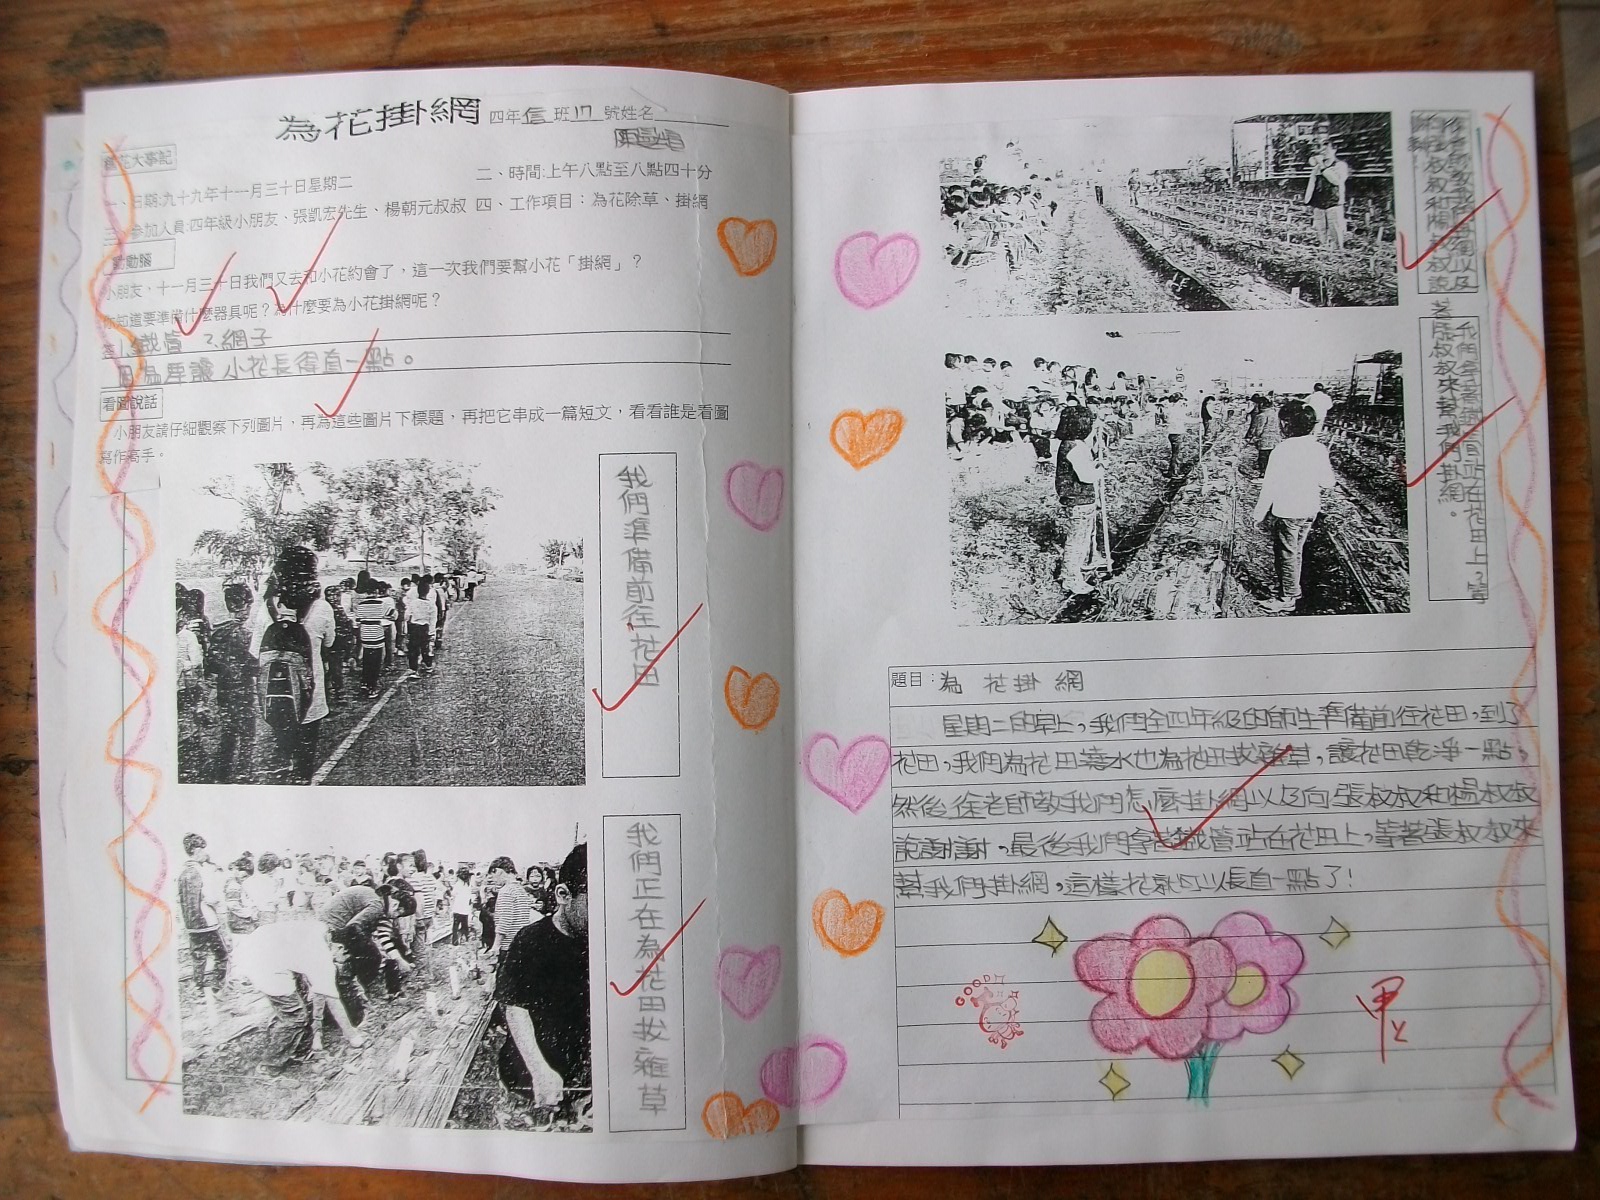 為花掛網 四年信班17號姓名
養花大事記
一、日期:九十九年十一月三十日星期二
二、時間:上午八點至八點四十分
三、參加人員:四年級小朋友、張凱宏先生、楊朝元叔叔
四、工作項目：為花除草、掛網
動動腦
小朋友，十一月三十日我們又去和小花約會了，這一次我們要幫小花「掛網」？
你知道要準備什麼器具呢？為什麼要為小花掛網呢？
答1.鐵管 2.網子
因為要讓小花長得直一點。
看圖說話
小朋友請仔細觀察下列圖片，再為這些圖片下標題，再把它串成一篇短文，看看誰是看圖
寫作高手。
我們準備前往花田
我們正在為花田拔雜草
徐老師教我們掛網以及
向張叔叔和楊叔叔說
謝謝
我們拿著鐵管站在花田上，等
著張叔叔來幫我們掛網。
題目：為花掛網
星期二的早上，我們全四年級的師生準備前往花田，到了
花田，我們為花田澆水也為花田拔雜草，讓花田乾淨一點。
然後徐老師教我們怎麼掛網以及向張叔叔和楊叔叔
說謝謝，最後我們拿著鐵管站在花田上，等著張叔叔來
幫我們掛網，這樣花就可以長直一點了！
GOOD
甲上